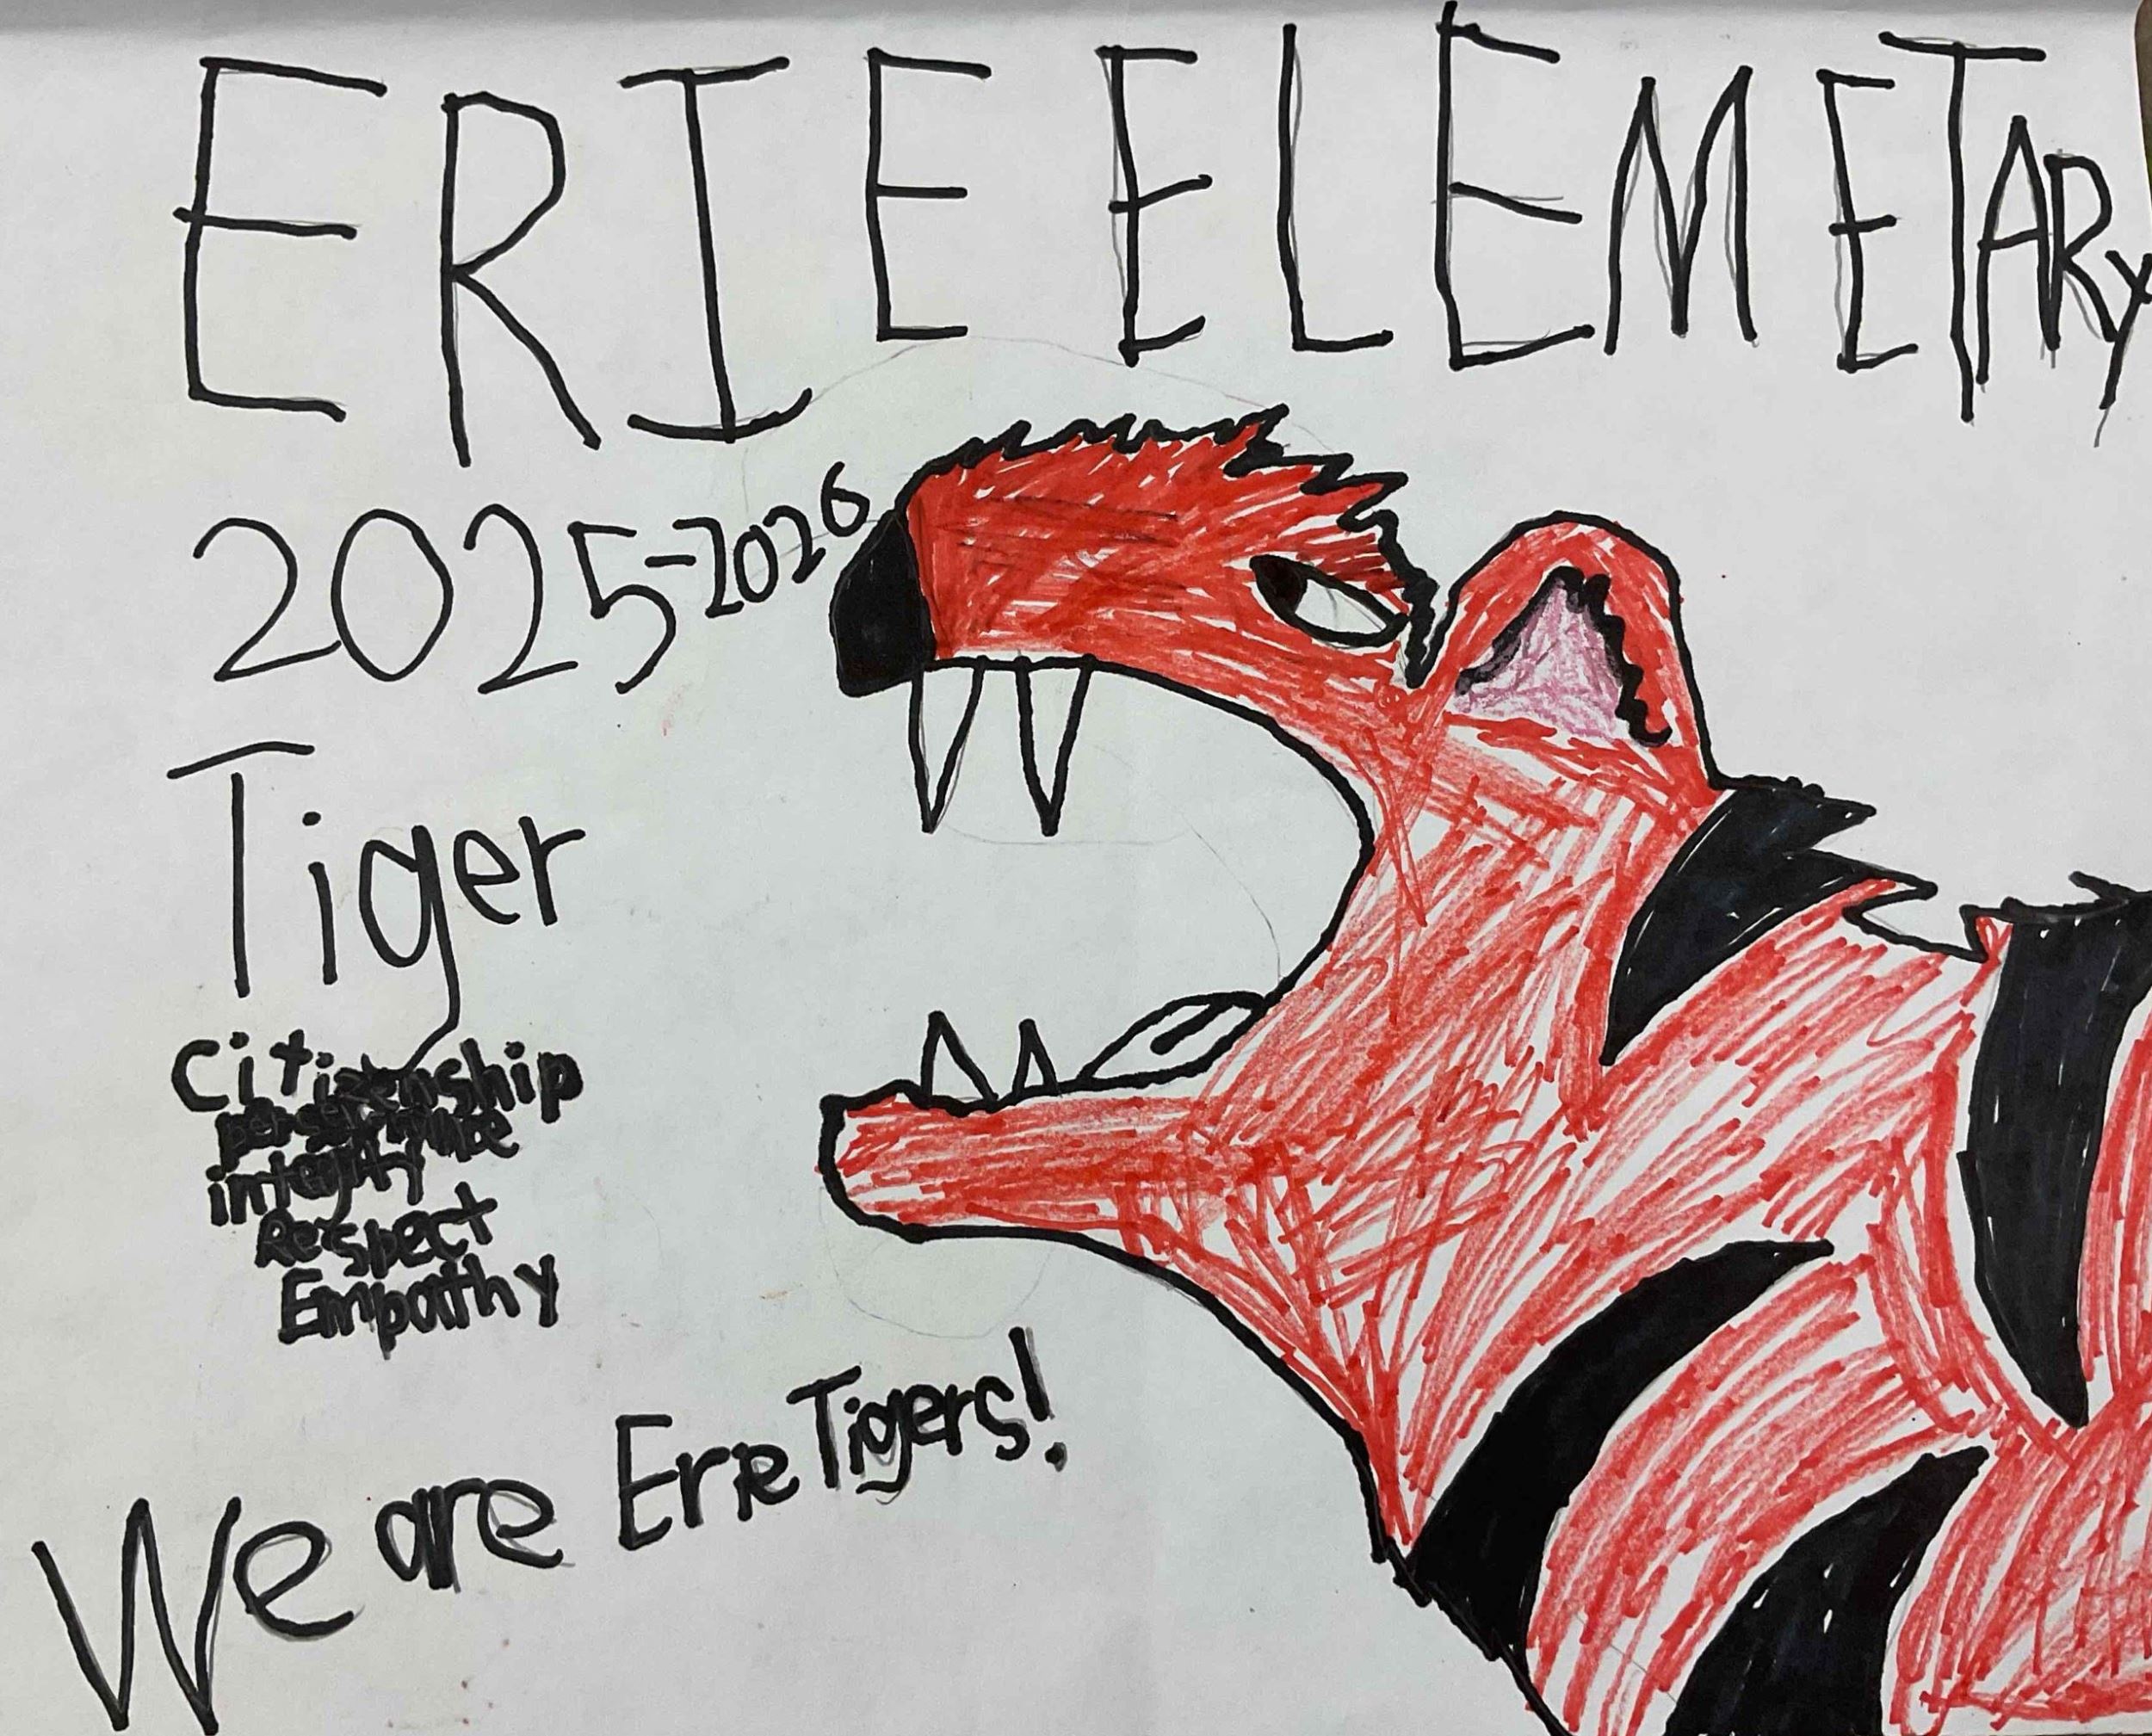 ERIE ELEMETARY
2025-2026
Tiger
Citizenship
perserverance
integrity
Respect
Empathy
We are Erie Tigers!